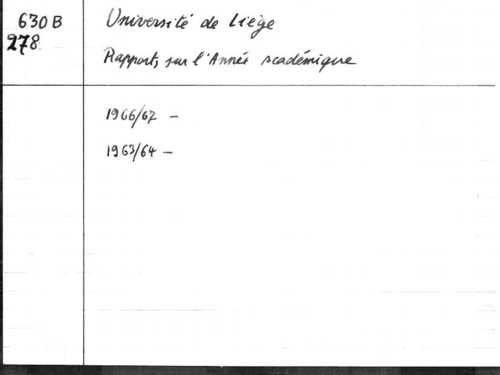 630B
278
Université de Liège
Rapport, sur l'Année académique
1966/67 -
1963/64 -